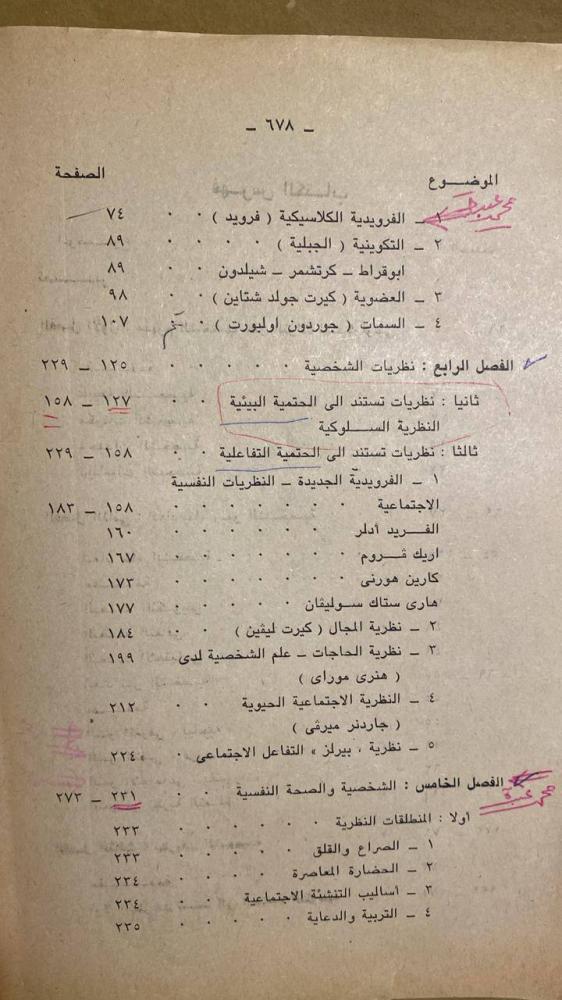 ـ ٦٧٨ ـ
الموضـــوع الصفحة
١ ـ الفرويدية الكلاسيكية ( فرويد ) ٠ ٠ ٧٤
٢ ـ التكوينية ( الجبلية ) ٠ ٠ ٠ ٠ ٨٩
ابوقراط ـ كرتشمر ـ شيلدون ٨٩
٣ ـ العضوية ( كيرت جولد شتاين ) ٠ ٠ ٩٨
٤ ـ السمات ( جوردون اولبورت ) ٠ ١٠٧
الفصل الرابع : نظريات الشخصية ٠ ٠ ٠ ٠ ٠ ١٢٥ ـ ٢٢٩
ثانيا : نظريات تستند الى الحتمية البيئية ٠ ٠ ١٢٧ ـ ١٥٨
النظرية الســـلوكية
ثالثا : نظريات تستند الى الحتمية التفاعلية ٠ ٠ ١٥٨ ـ ٢٢٩
١ ـ الفرويدية الجديدة ـ النظريات النفسية
الاجتماعية ٠ ٠ ٠ ٠ ٠ ٠ ١٥٨ ـ ١٨٣
الفـــريد أدلر ٠ ٠ ٠ ٠ ٠ ٠ ١٦٠
اريك فـروم ٠ ٠ ٠ ٠ ٠ ٠ ١٦٧
كارين هورنى ٠ ٠ ٠ ٠ ٠ ٠ ١٧٣
هارى ستاك سـوليڤان ٠ ٠ ٠ ٠ ١٧٧
٢ ـ نظرية المجال ( كيرت ليڤين ) ٠ ٠ ١٨٤
٣ ـ نظرية الحاجات ـ علم الشخصية لدى ١٩٩
( هنرى موراى )
٤ ـ النظرية الاجتماعية الحيوية ٠ ٠ ٢١٢
( جاردنر ميرڤى )
٥ ـ نظرية ، بيرلز » التفاعل الاجتماعى ٠ ٢٢٤
الفصل الخامس : الشخصية والصحة النفسية ٠ ٠ ٢٣١ ـ ٢٧٣
اولا : المنطلقات النظرية ٠ ٠ ٠ ٠ ٠ ٢٣٣
١ ـ الصراع والقلق ٠ ٠ ٠ ٠ ٠ ٢٣٣
٢ ـ الحضارة المعاصرة ٠ ٠ ٠ ٠ ٢٣٤
٣ ـ أساليب التنشئة الاجتماعية ٠ ٠ ٠ ٢٣٤
٤ ـ التربية والدعاية ٠ ٠ ٠ ٠ ٠ ٢٣٥